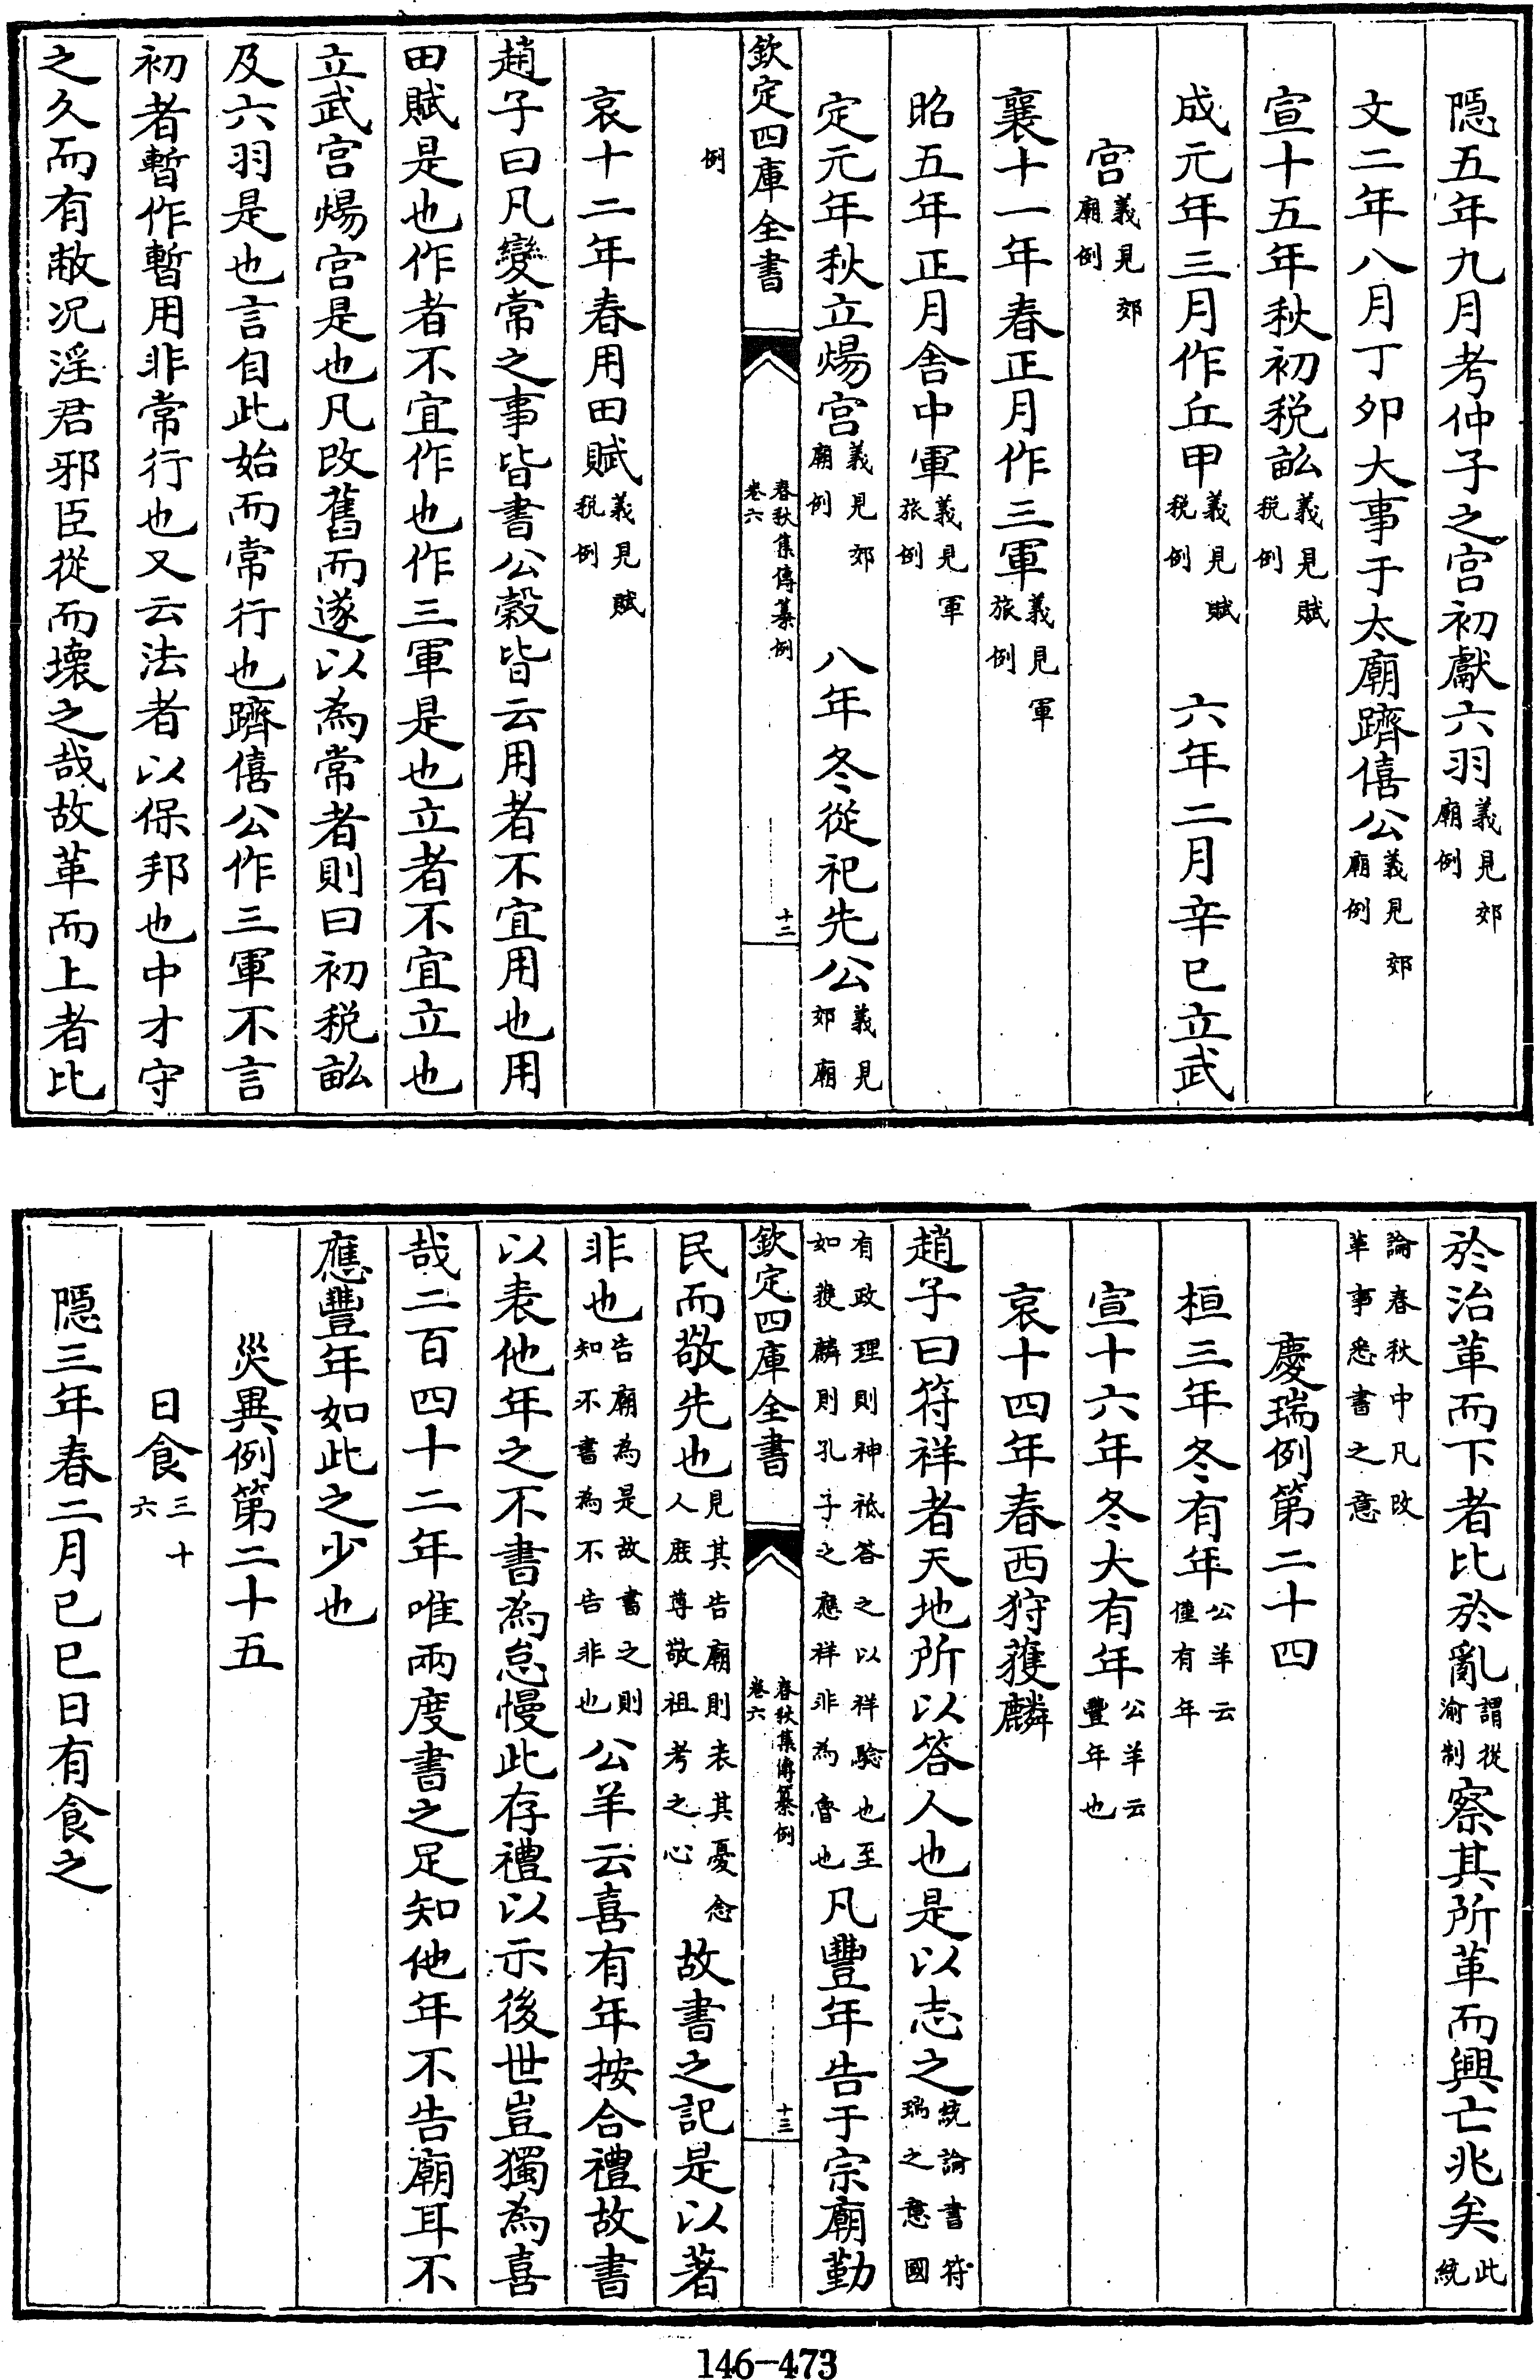 隠五年九月考仲子之宫初獻六羽義見郊廟例
文二年八月丁夘大事于太廟躋僖公義見郊廟例
宣十五年秋初税畝義見賦税例
成元年三月作丘甲義見賦税例　六年二月辛巳立武
宫義見郊廟例
襄十一年春正月作三軍義見軍旅例
昭五年正月舎中軍義見軍旅例
定元年秋立煬宫義見郊廟例　八年冬從祀先公義見郊廟
欽定四庫全書　春秋集傳纂例卷六　十二
例
哀十二年春用田賦義見賦税例
趙子曰凡變常之事皆書公榖皆云用者不宜用也用
田賦是也作者不宜作也作三軍是也立者不宜立也
立武宫煬宫是也凡改舊而遂以為常者則曰初税畝
及六羽是也言自此始而常行也躋僖公作三軍不言
初者暫作暫用非常行也又云法者以保邦也中才守
之久而有敝况淫君邪臣從而壊之哉故革而上者比
於治革而下者比於亂謂從渝制察其所革而興亡兆矣此統
論春秋中凡改革事悉書之意
慶瑞例第二十四
桓三年冬有年公羊云僅有年
宣十六年冬大有年公羊云豐年也
哀十四年春西狩獲麟
趙子曰符祥者天地所以答人也是以志之統論書符瑞之意國
有政理則神祗答之以祥驗也至如獲麟則孔子之應祥非為魯也凡豐年告于宗廟勤
欽定四庫全書　春秋集傳纂例卷六　十三
民而敬先也見其告廟則表其憂念人庶尊敬祖考之心故書之記是以著
非也告廟為是故書之則知不書為不告非也公羊云喜有年按合禮故書
以表他年之不書為怠慢此存禮以示後世豈獨為喜
哉二百四十二年唯兩度書之足知他年不告廟耳不
應豐年如此之少也
災異例第二十五
日食三十六
隠三年春二月已巳日有食之
146-473